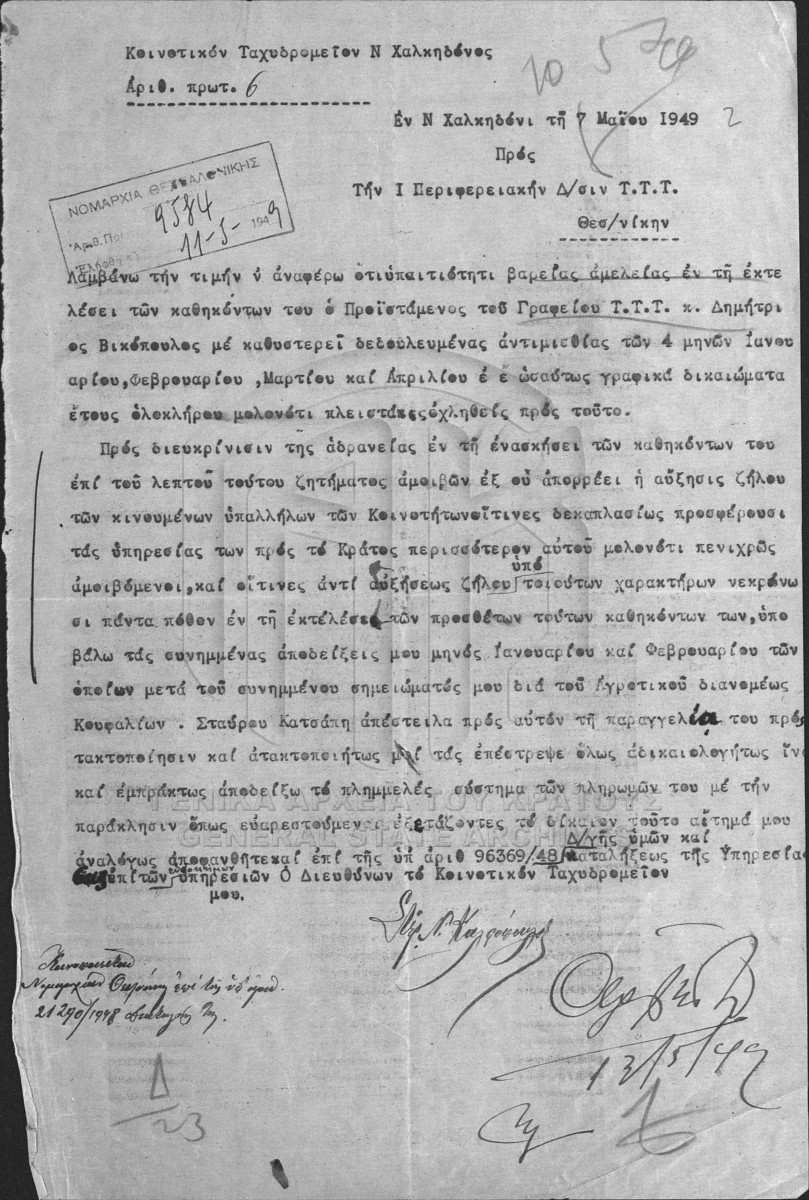 Κοινοτικόν Ταχυδρομεῖον Ν Χαλκηδόνος
Ἀριθ. πρωτ. 6
10 5
Ἐν Ν Χαλκηδόνι τῇ 7 Μαῒου 1949 2
Πρός
Τήν Ι Περιφερειακήν Δ/σιν Τ.Τ.Τ.
Θεσ/νίκην
ΝΟΜΑΡΧΙΑ ΘΕΣΣΑΛΟΝΙΚΗΣ
Ἀριθ. Πρωτ. 9584
Ἐλήφθη 11-5-1949
Λαμβάνω τήν τιμήν ν ἀναφέρω ὀτιὑπαιτιότητι βαρείας ἀμελείας ἐν τῇ ἐκτε
λέσει τῶν καθηκόντων του ὁ Προϊστάμενος τοῦ Γραφείου Τ.Τ.Τ. κ. Δημήτρι
ος Βικόπουλος μέ καθυστερεῖ δεδουλευμένας ἀντιμισθίας τῶν 4 μηνῶν Ἰανου
αρίου,Φεβρουαρίου ,Μαρτίου καί Ἀπριλίου ἐ ἐ ὡσαύτως γραφικά δικαιώματα
ἔτους ὁλοκλήρου μολονότι πλειστάκις ὀχληθείς πρός τοῦτο.
Πρός διευκρίνισιν της ἀδρανείας ἐν τῇ ἐνασκήσει τῶν καθηκόντων του
ἐπί τοῦ λεπτοῦ τούτου ζητήματος ἀμοιβῶν ἐξ οὗ ἀπορρέει ἡ αὔξησις ζήλου
τῶν κινουμένων ὑπαλλήλων τῶν Κοινοτήτωνοἵτινες δεκαπλασίως προσφέρουσι
τάς ὑπηρεσίας των πρός τό Κράτος περισσότερον αὐτοῦ μολονότι πενιχρῶς
ὑπό
ἀμοιβόμενοι,καί οἵτινες ἀντί αὐξήσεως ζήλου τοιούτων χαρακτήρων νεκρώνω
σι πάντα πόθον ἐν τῇ ἐκτέλέσει τῶν προσθέτων τούτων καθηκόντων των,ὑπο
βάλω τάς συνημμένας ἀποδείξεις μου μηνός Ἰανουαρίου καί Φεβρουαρίου τῶν
ὁποίων μετά τοῦ συνημμένου σημειώματός μου διά τοῦ Ἀγροτικοῦ διανομέως
Κουφαλίων . Σταύρου Κατσάπη ἀπέστειλα πρός αὐτόν τῇ παραγγελίᾳ του πρός
τακτοποίησιν καί ἀτακτοποιήτως μοί τάς ἐπέστρεψε ὅλως ἀδικαιολογήτως ἵνα
καί ἐμπράκτως ἀποδείξω τό πλημμελές σύστημα τῶν πληρωμῶν του μέ τήν
παράκλησιν ὅπως εὐαρεστούμενοι ἐξετάζοντες τό δίκαιον τοῦτο αἴτημά μου
Δ/γῆς ὑμῶν καί
ἀναλόγως ἀποφανθῆτεκαί ἐπί τῆς ὑπ ἀριθ 96369/48 καταλήξεως τῆς Ὑπηρεσίας
ἐπί τῶν ὑπηρεσιῶν Ὁ Διευθύνων τό Κοινοτικόν Ταχυδρομεῖον
μου.
Κοινοποιεῖται
Νομαρχίαν ἐπί τῆς ὑπ ἀριθ.
21290/1948
13/5/49
Δ
23
ΓΕΝΙΚΑ ΑΡΧΕΙΑ ΤΟΥ ΚΡΑΤΟΥΣ
GENERAL STATE ARCHIVES